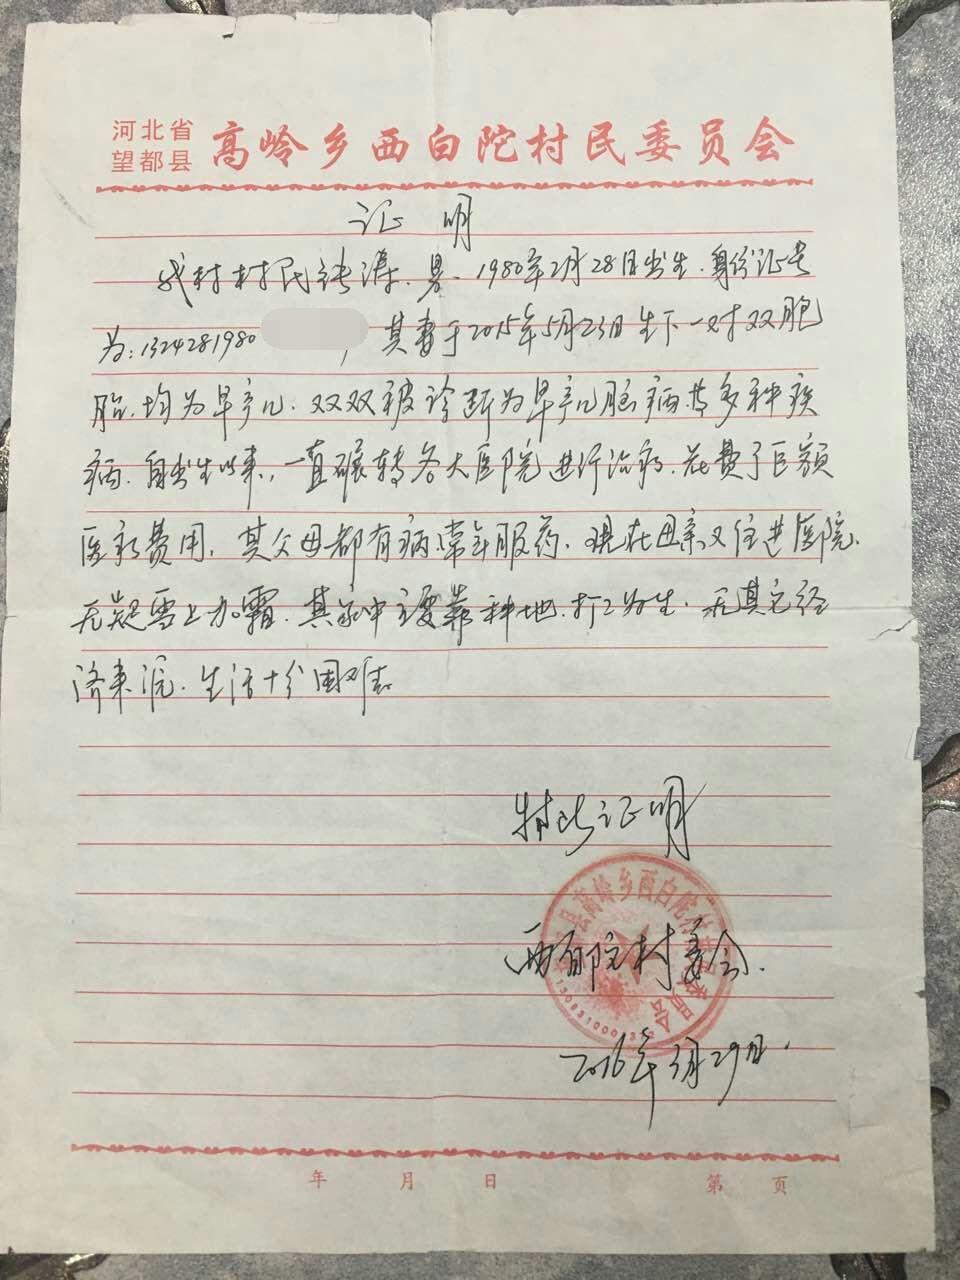 河北省
望都县
高岭乡西白陀村民委员会
证 明
我村村民张涛、男、1980年2月28日出生、身份证号
为：1324281980 ，其妻于2015年5月23日生下一对双胞
胎、均为早产儿、双双被诊断为早产儿脑病等多种疾
病、自出生以来，一直碾转各大医院进行治病、花费了巨额
医疗费用，其父母都有病常年服药、现在母亲又住进医院、
无疑雪上加霜、其家中主要靠种地、打工为生、无其它经
济来源、生活十分困难。
特此证明
西白陀村委会
2016年3月29日.
高岭乡西白陀村民委员会
年 月 日 第 页